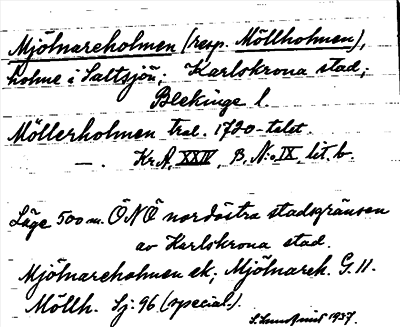 Mjölnareholmen (resp. Möllholmen),
holme i Saltsjön; Karlskrona stad;
Blekinge l.
Möllerholmen tral. 1720-talet.
—. Kr.A. XXIV, B. N:o IX, lit. b.
Läge 500 m. ÖNÖ nordöstra stadsgränsen
av Karlskrona stad.
Mjölnareholmen ek; Mjölnareh. G. 11.
Möllh. Sj: 96 (special).
1937.